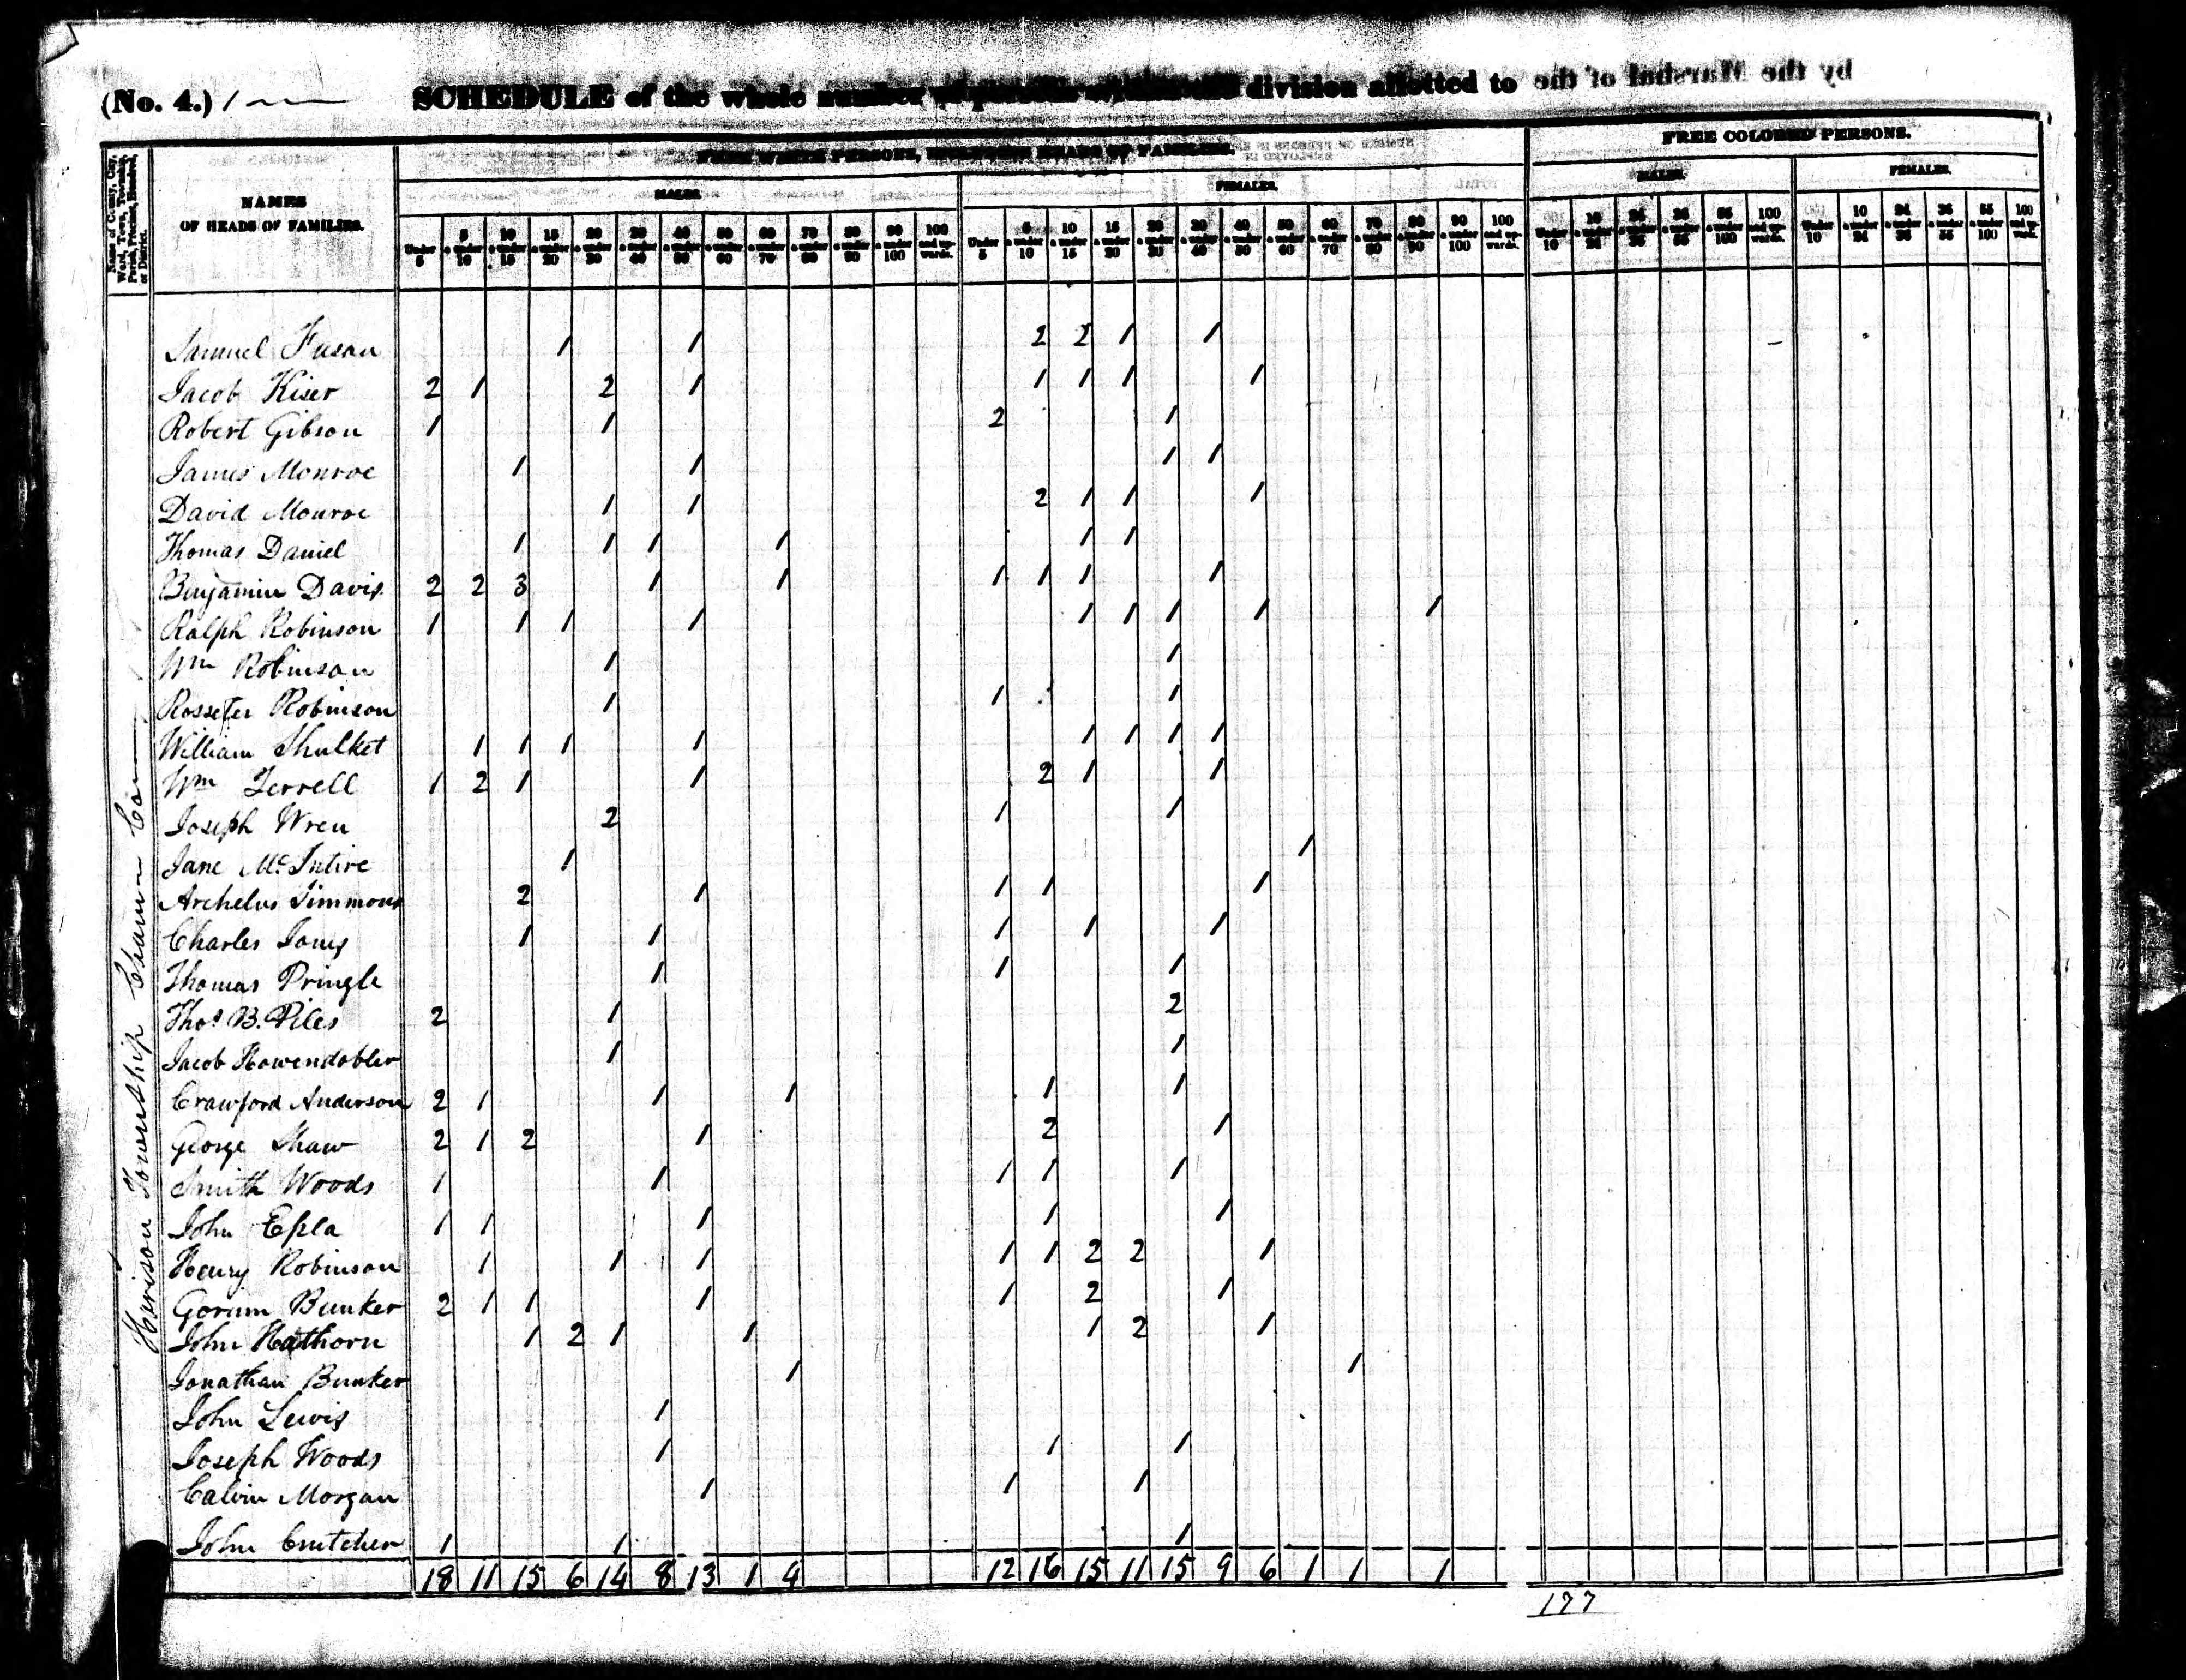 (No. 4.) 1
SCHEDULE of the whole number of persons within the division allotted to by the Marshal of the
FREE WHITE PERSONS, INCLUDING HEADS OF FAMILIES.
FREE COLORED PERSONS.
MALES. FEMALES. MALES. FEMALES.
Name of County, City, Ward, Town, Township, Parish, Precinct, Hundred, or District.
NAMES
OF HEADS OF FAMILIES.
Under 5 | 5 & under 10 | 10 & under 15 | 15 & under 20 | 20 & under 30 | 30 & under 40 | 40 & under 50 | 50 & under 60 | 60 & under 70 | 70 & under 80 | 80 & under 90 | 90 & under 100 | 100 and upwards.
Under 5 | 5 & under 10 | 10 & under 15 | 15 & under 20 | 20 & under 30 | 30 & under 40 | 40 & under 50 | 50 & under 60 | 60 & under 70 | 70 & under 80 | 80 & under 90 | 90 & under 100 | 100 and upwards.
Under 10 | 10 & under 24 | 24 & under 36 | 36 & under 55 | 55 & under 100 | 100 and upwards.
Under 10 | 10 & under 24 | 24 & under 36 | 36 & under 55 | 55 & under 100 | 100 and upwards.
Harrison Township
Samuel Fusan 1 1 2 2 1 1
Jacob Kiser 2 1 2 1 1 1 1 1
Robert Gibson 1 1 2 1
James Monroe 1 1 1 1
David Monroe 1 1 2 1 1 1
Thomas Daniel 1 1 1 1 1 1
Benjamin Davis 2 2 3 1 1 1 1 1 1
Ralph Robinson 1 1 1 1 1 1 1 1 1
Wm Robinson 1 1
Rosseter Robinson 1 1 1
William Shulket 1 1 1 1 1 1 1 1
Wm Terrell 1 2 1 1 2 1 1
Joseph Wren 2 1 1
Jane McIntire 1 1
Archelus Simmons 2 1 1 1 1
Charles Jones 1 1 1 1 1
Thomas Pringle 1 1 1
Thos B. Piles 2 1 2
Jacob Howendobler 1 1
Crawford Anderson 2 1 1 1 1 1
George Shaw 2 1 2 1 2 1
Smith Woods 1 1 1 1 1
John Epla 1 1 1 1 1
Henry Robinson 1 1 1 1 1 2 2 1
Gorum Bunker 2 1 1 1 1 2 1
John Hathorn 1 2 1 1 1 2 1
Jonathan Bunker 1 1
John Lewis 1
Joseph Woods 1 1 1
Calvin Morgan 1 1 1
John Crutcher 1 1 1
18 11 15 6 14 8 13 1 4 12 16 15 11 15 9 6 1 1 1
177